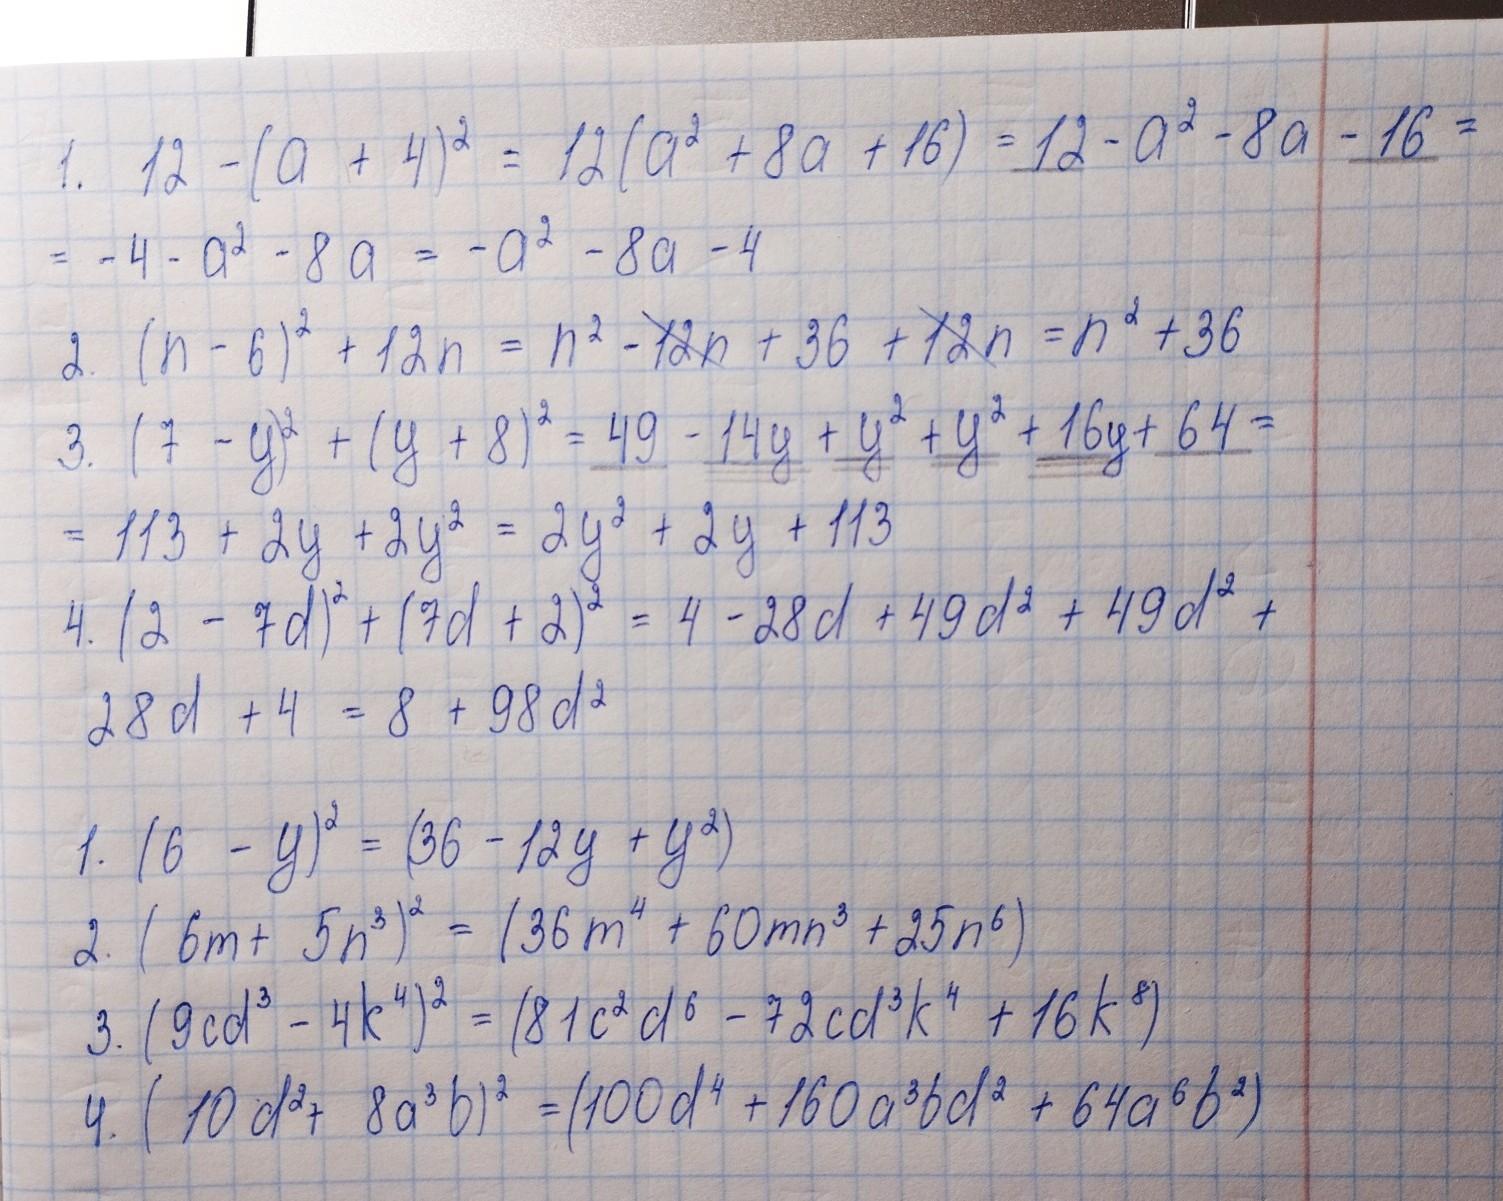 1. 12 - (a + 4)² = 12(a² + 8a + 16) = 12 - a² - 8a - 16 =
= -4 - a² - 8a = -a² - 8a - 4
2. (n - 6)² + 12n = n² - 12n + 36 + 12n = n² + 36
3. (7 - y)² + (y + 8)² = 49 - 14y + y² + y² + 16y + 64 =
= 113 + 2y + 2y² = 2y² + 2y + 113
4. (2 - 7d)² + (7d + 2)² = 4 - 28d + 49d² + 49d² +
28d + 4 = 8 + 98d²
1. (6 - y)² = (36 - 12y + y²)
2. (6m + 5n³)² = (36m⁴ + 60mn³ + 25n⁶)
3. (9cd³ - 4k⁴)² = (81c²d⁶ - 72cd³k⁴ + 16k⁸)
4. (10d² + 8a³b)² = (100d⁴ + 160a³bd² + 64a⁶b²)